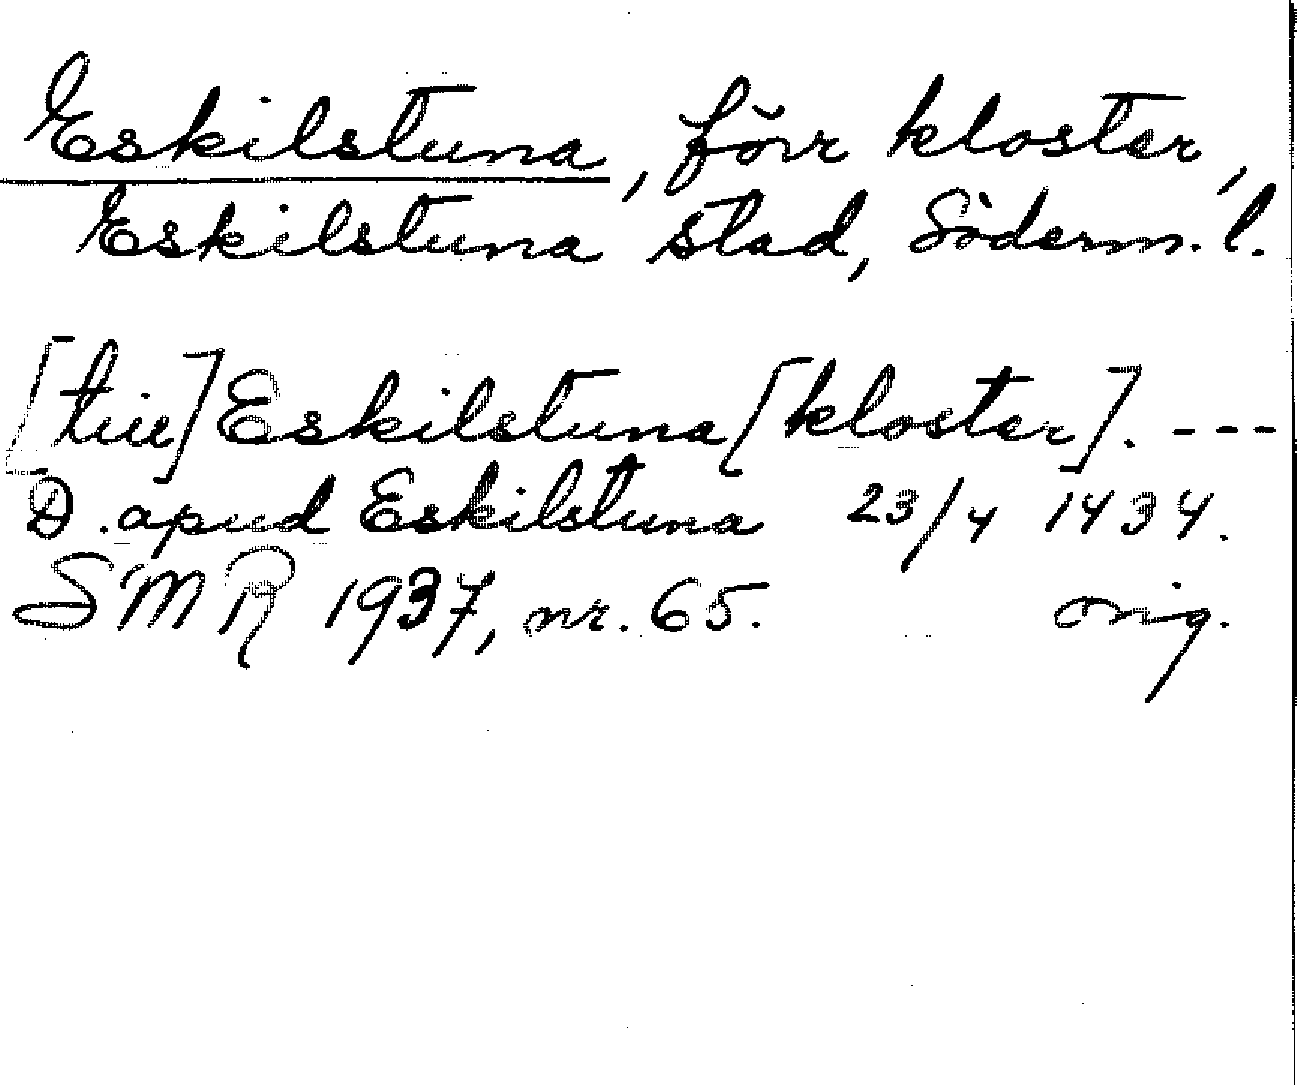 Eskilstuna, förr kloster,
Eskilstuna stad, Söderm. l.
[till] Eskilstuna [kloster]. ---
D. apud Eskilstuna 23/4 1434.
SMR 1937, nr. 65. orig.